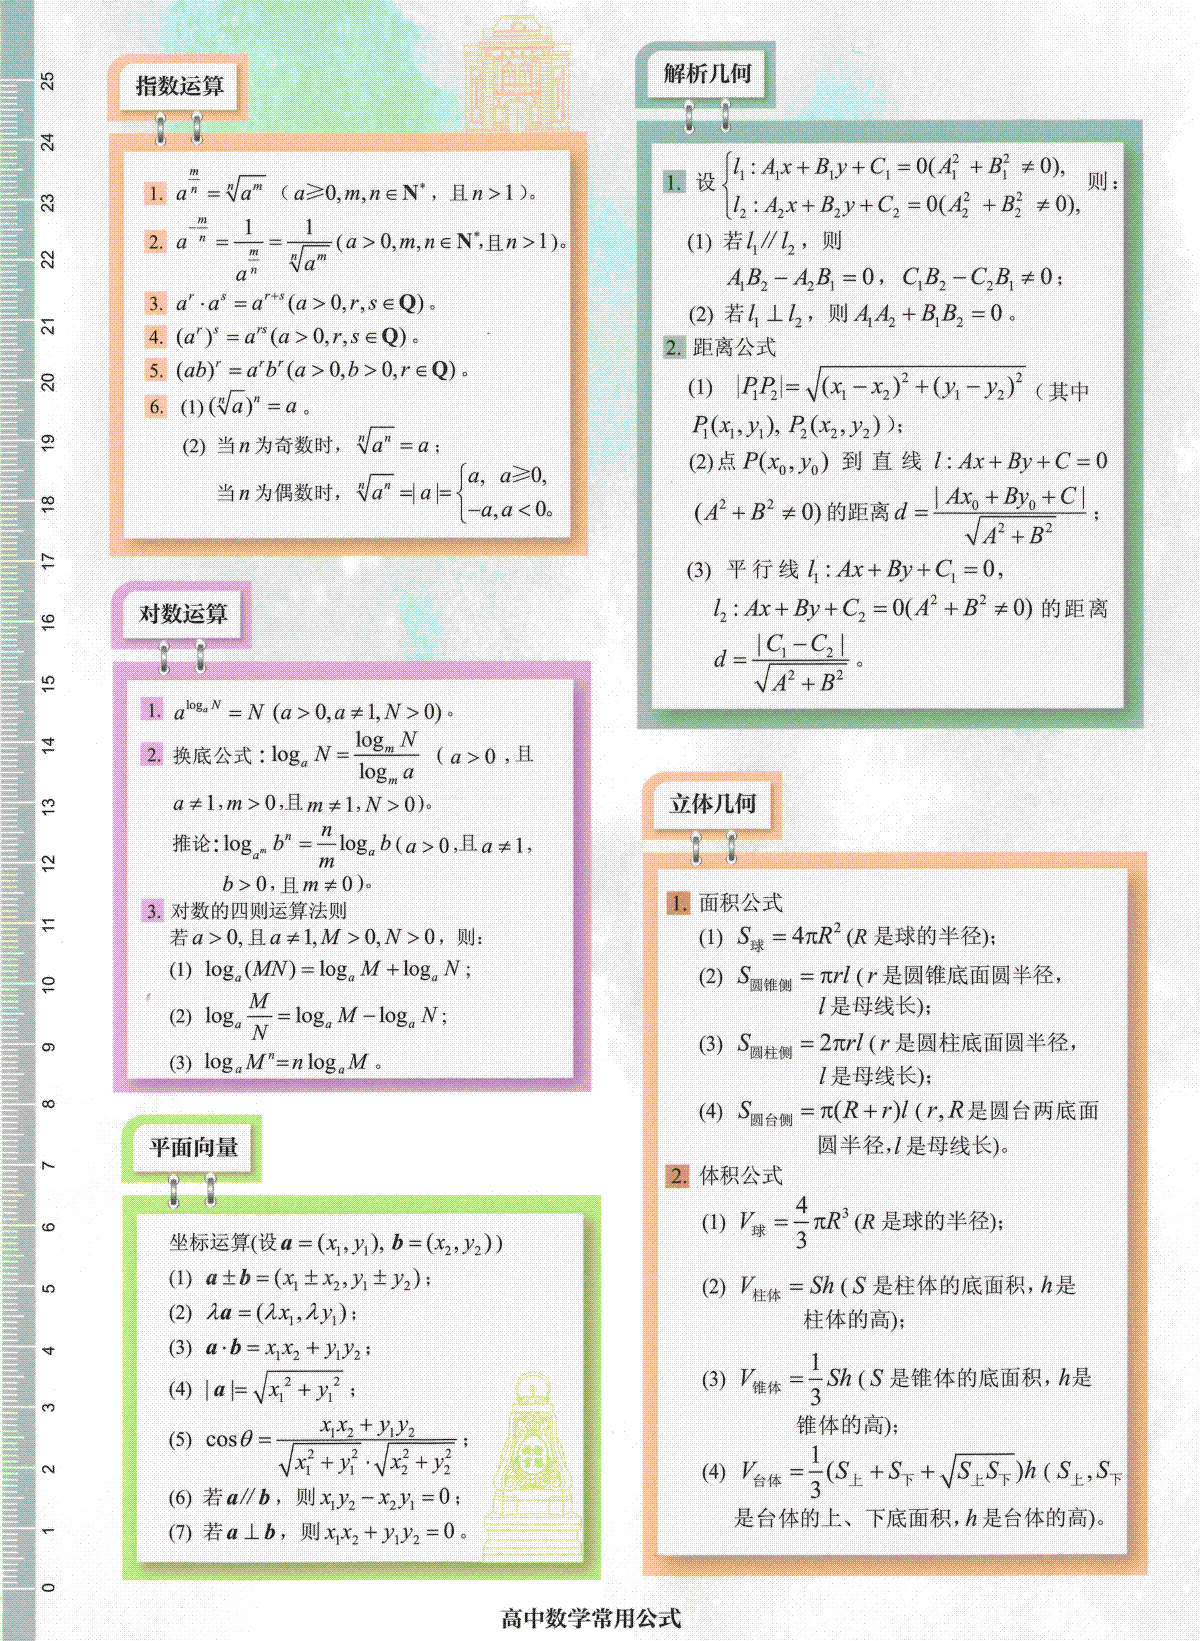 指数运算
1. a^{m/n} = ⁿ√(a^m) (a≥0, m, n∈N*, 且n>1)。
2. a^{-m/n} = 1/a^{m/n} = 1/ⁿ√(a^m) (a>0, m, n∈N*, 且n>1)。
3. a^r·a^s = a^{r+s} (a>0, r, s∈Q)。
4. (a^r)^s = a^{rs} (a>0, r, s∈Q)。
5. (ab)^r = a^r b^r (a>0, b>0, r∈Q)。
6. (1) (ⁿ√a)^n = a。
(2) 当n为奇数时, ⁿ√(a^n) = a;
当n为偶数时, ⁿ√(a^n) = |a| = { a, a≥0,
-a, a<0。
对数运算
1. a^{log_a N} = N (a>0, a≠1, N>0)。
2. 换底公式: log_a N = log_m N / log_m a (a>0, 且
a≠1, m>0, 且m≠1, N>0)。
推论: log_{a^m} b^n = n/m log_a b (a>0, 且a≠1,
b>0, 且m≠0)。
3. 对数的四则运算法则
若a>0, 且a≠1, M>0, N>0, 则:
(1) log_a (MN) = log_a M + log_a N;
(2) log_a M/N = log_a M − log_a N;
(3) log_a M^n = n log_a M。
平面向量
坐标运算(设a = (x₁, y₁), b = (x₂, y₂))
(1) a ± b = (x₁ ± x₂, y₁ ± y₂);
(2) λa = (λx₁, λy₁);
(3) a·b = x₁x₂ + y₁y₂;
(4) |a| = √(x₁² + y₁²);
(5) cosθ = (x₁x₂ + y₁y₂) / (√(x₁² + y₁²)·√(x₂² + y₂²));
(6) 若a∥b, 则x₁y₂ − x₂y₁ = 0;
(7) 若a⊥b, 则x₁x₂ + y₁y₂ = 0。
解析几何
1. 设 { l₁: A₁x + B₁y + C₁ = 0(A₁² + B₁² ≠ 0),
l₂: A₂x + B₂y + C₂ = 0(A₂² + B₂² ≠ 0), 则:
(1) 若l₁∥l₂, 则
A₁B₂ − A₂B₁ = 0, C₁B₂ − C₂B₁ ≠ 0;
(2) 若l₁⊥l₂, 则A₁A₂ + B₁B₂ = 0。
2. 距离公式
(1) |P₁P₂| = √((x₁ − x₂)² + (y₁ − y₂)²) (其中
P₁(x₁, y₁), P₂(x₂, y₂));
(2) 点P(x₀, y₀) 到直线 l: Ax + By + C = 0
(A² + B² ≠ 0) 的距离 d = |Ax₀ + By₀ + C| / √(A² + B²);
(3) 平行线 l₁: Ax + By + C₁ = 0,
l₂: Ax + By + C₂ = 0(A² + B² ≠ 0) 的距离
d = |C₁ − C₂| / √(A² + B²)。
立体几何
1. 面积公式
(1) S球 = 4πR² (R 是球的半径);
(2) S圆锥侧 = πrl (r 是圆锥底面圆半径,
l 是母线长);
(3) S圆柱侧 = 2πrl (r 是圆柱底面圆半径,
l 是母线长);
(4) S圆台侧 = π(R + r)l (r, R是圆台两底面
圆半径, l 是母线长)。
2. 体积公式
(1) V球 = 4/3 πR³ (R 是球的半径);
(2) V柱体 = Sh (S 是柱体的底面积, h是
柱体的高);
(3) V锥体 = 1/3 Sh (S 是锥体的底面积, h是
锥体的高);
(4) V台体 = 1/3 (S上 + S下 + √(S上S下))h (S上, S下
是台体的上、下底面积, h 是台体的高)。
高中数学常用公式
25
24
23
22
21
20
19
18
17
16
15
14
13
12
11
10
9
8
7
6
5
4
3
2
1
0